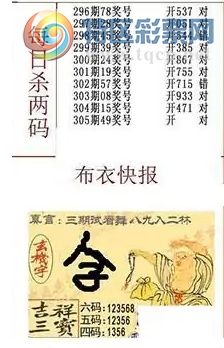 每日杀两码
296期78奖号 开537 对
297期28奖号 开051 对
298期45奖号 开644 错
299期39奖号 开385 对
300期24奖号 开867 对
301期19奖号 开755 对
302期57奖号 开715 错
303期08奖号 开933 对
304期15奖号 开471 对
305期49奖号 开 对
布衣快报
真言：三期试看舞八九入二杯
玄机字
吉祥三宝
六码：123568
五码：12356
四码：1356